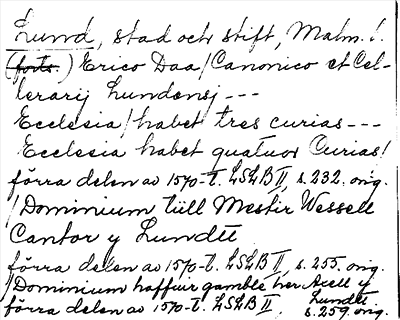 Lund, stad och stift, Malm. l.
(forts.) Erico Daa/Canonico et Cel-
lerarij Lundensj ---
Ecclesia/habet tres curias ---
Ecclesia habet quatuor Curias/
förra delen av 1570-t. LSLB II, s. 232. orig.
/Dominium till Mester Wessell
Cantor y Lundtt
förra delen av 1570-t. LSLB II, s. 255. orig.
/Dominium haffuir gamble her Axell y
Lundtt.
förra delen av 1570-t. LSLB II, s. 259. orig.